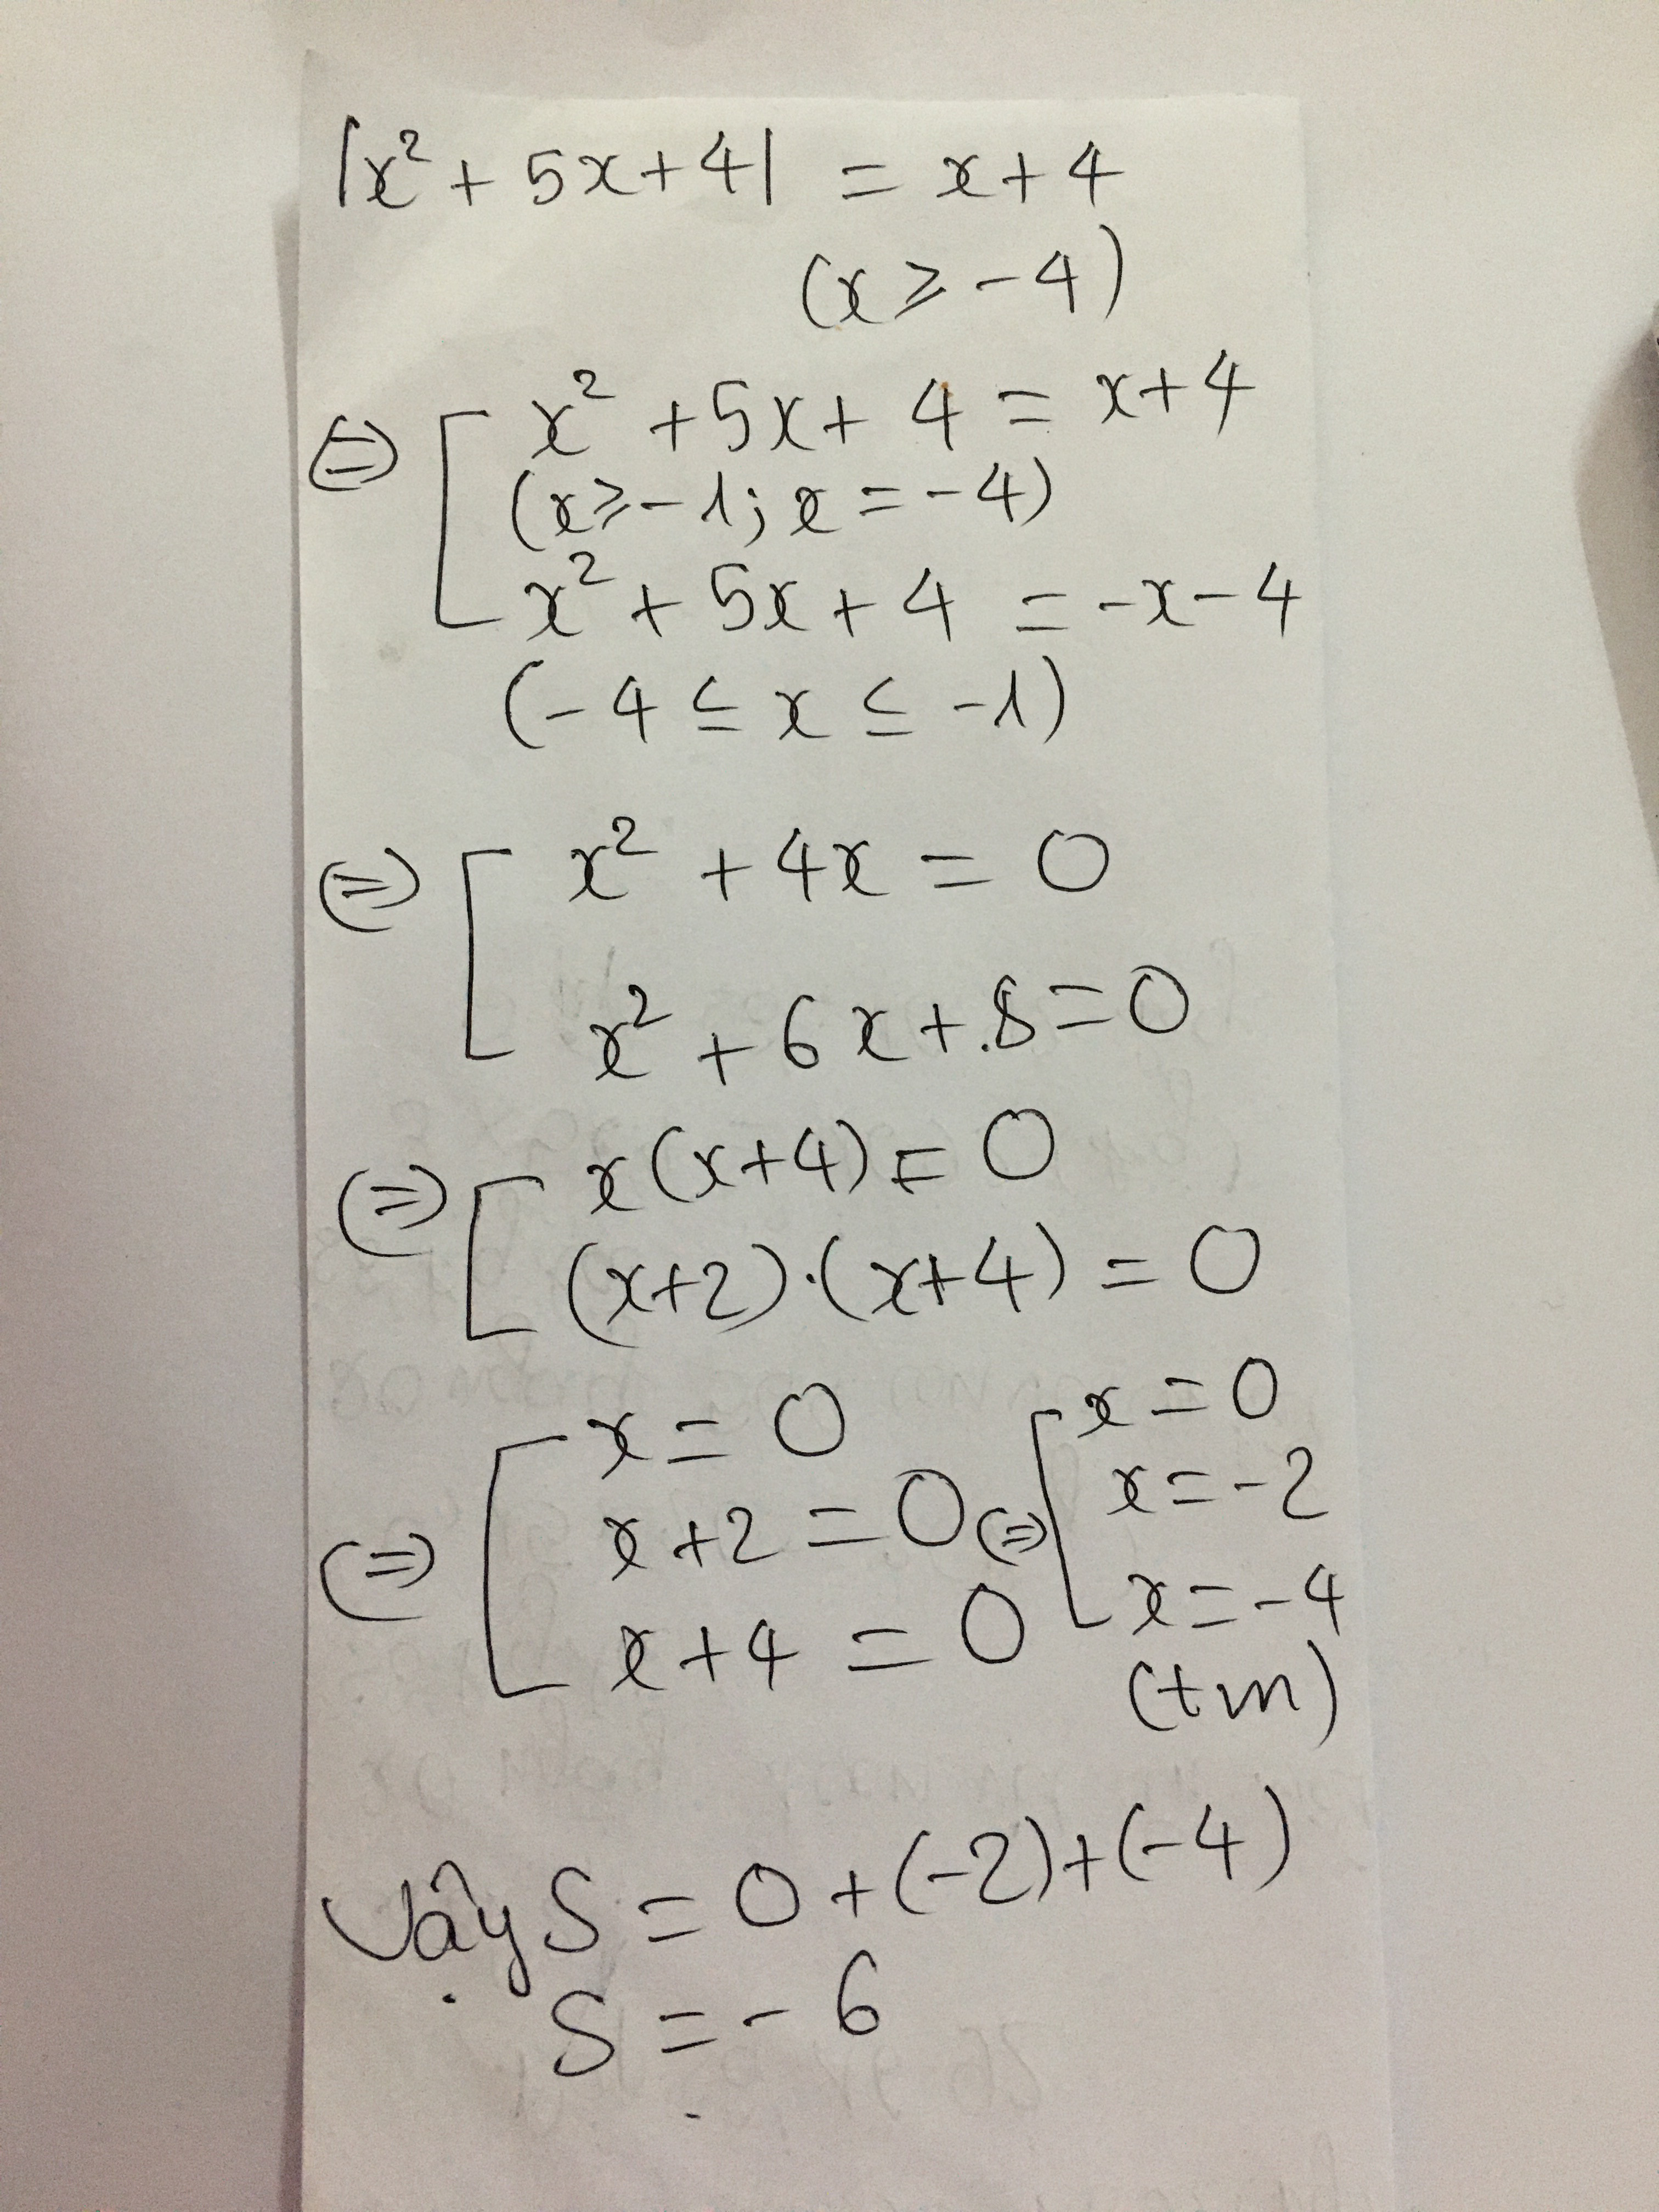 |x² + 5x + 4| = x + 4
(x ≥ -4)
⇔ [ x² + 5x + 4 = x + 4
(x ≥ -1; x = -4)
x² + 5x + 4 = -x - 4
(-4 ≤ x ≤ -1)
⇔ [ x² + 4x = 0
x² + 6x + 8 = 0
⇔ [ x(x+4) = 0
(x+2).(x+4) = 0
⇔ [ x = 0 ⇔ [ x = 0
x + 2 = 0 x = -2
x + 4 = 0 x = -4
(tm)
Vậy S = 0 + (-2) + (-4)
S = -6